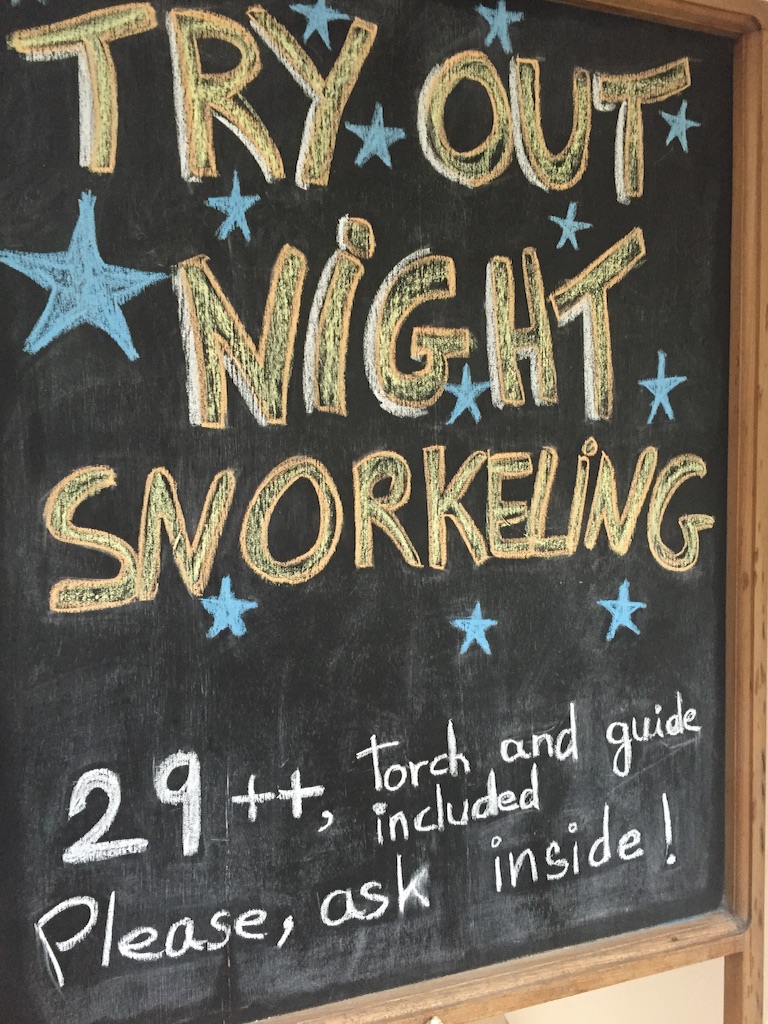 TRY OUT
NiGHT
SNORKELiNG
29++, torch and guide
included
Please, ask inside!